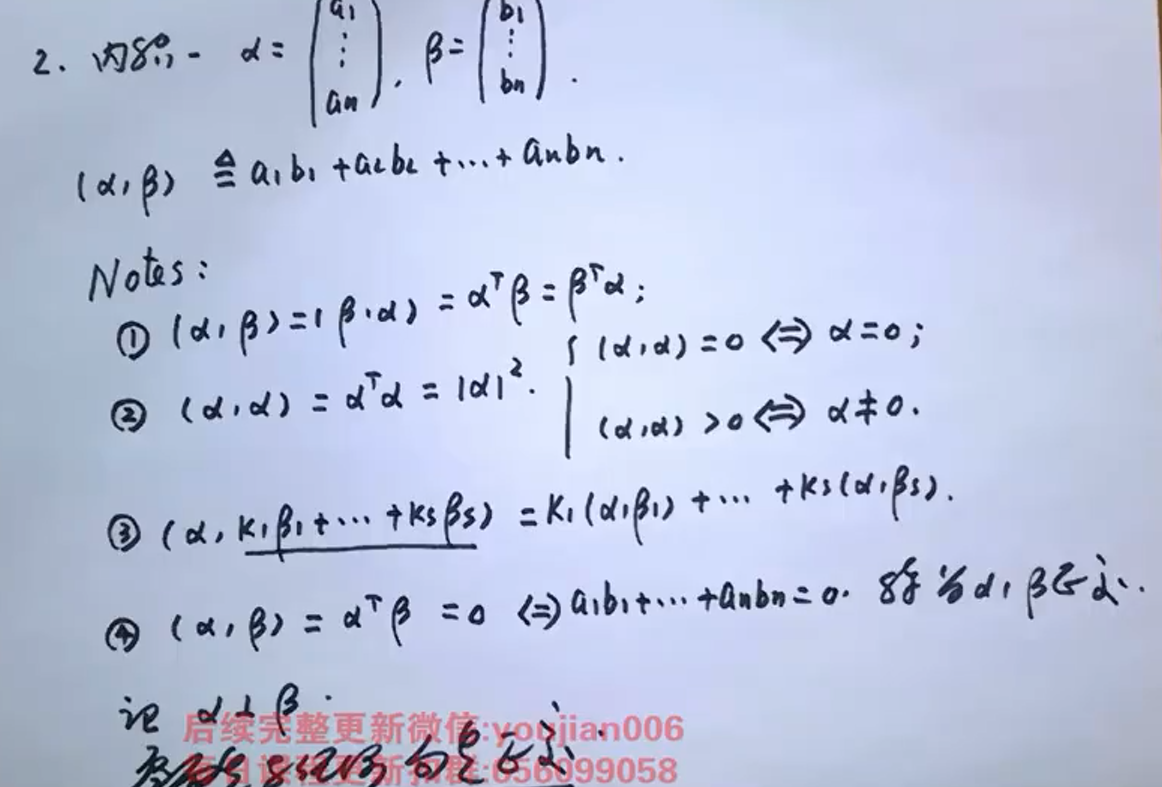 2. 内积 - α = (a1 ⋮ an), β = (b1 ⋮ bn).
(α, β) ≜ a1b1 + a2b2 + ... + anbn.
Notes:
① (α, β) = (β, α) = αᵀβ = βᵀα;
② (α, α) = αᵀα = |α|². { (α, α) = 0 ⇔ α = 0;
(α, α) > 0 ⇔ α ≠ 0.
③ (α, k1β1 + ... + ksβs) = k1(α, β1) + ... + ks(α, βs).
④ (α, β) = αᵀβ = 0 ⇔ a1b1 + ... + anbn = 0. 称为 α, β 正交.
记 α ⊥ β.
后续完整更新微信:youjian006
向量正交
更新扣群:656099058